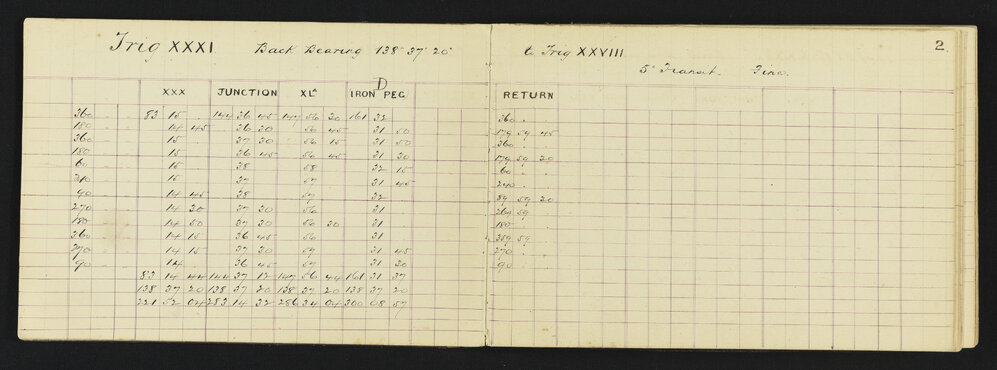 2.
Trig XXXI Back Bearing 138° 37' 20" to Trig XXVIII
5" Transit. Fine.
D
XXX JUNCTION XLA IRON PEG RETURN
360 83 15 .. 144 36 45 147 56 30 161 32 360 .. ..
180 14 45 36 30 56 45 31 50 179 59 45
360 15 .. 37 30 56 15 31 50 360 .. ..
180 15 36 45 56 45 31 30 179 59 20
60 15 38 58 32 15 60 .. ..
240 15 37 57 31 45 240 .. ..
90 14 45 38 57 32 89 59 20
270 14 30 37 30 56 31 269 59
180 14 50 37 30 56 30 31 180
360 14 15 36 45 56 31 359 59
270 14 15 37 30 57 31 45 270
90 14 36 45 57 31 30 90
83 14 44 144 37 12 147 56 44 161 31 37
138 37 20 138 37 20 138 37 20 138 37 20
221 52 04 283 14 32 286 34 04 300 08 57